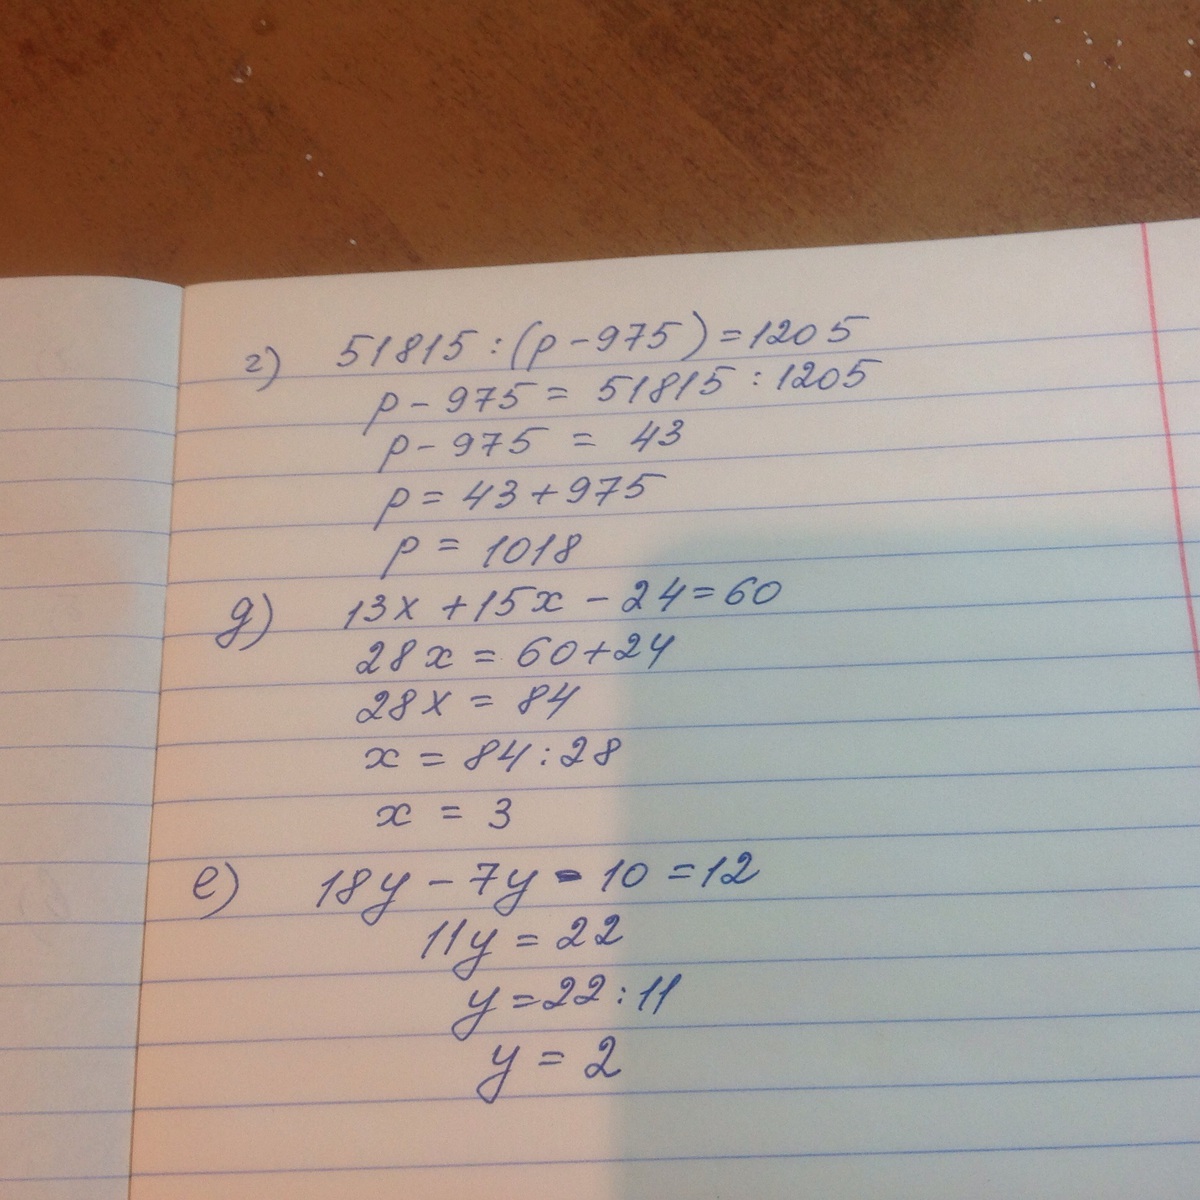 г) 51815 : (p - 975) = 1205
p - 975 = 51815 : 1205
p - 975 = 43
p = 43 + 975
p = 1018
д) 13x + 15x - 24 = 60
28x = 60 + 24
28x = 84
x = 84 : 28
x = 3
е) 18y - 7y - 10 = 12
11y = 22
y = 22 : 11
y = 2